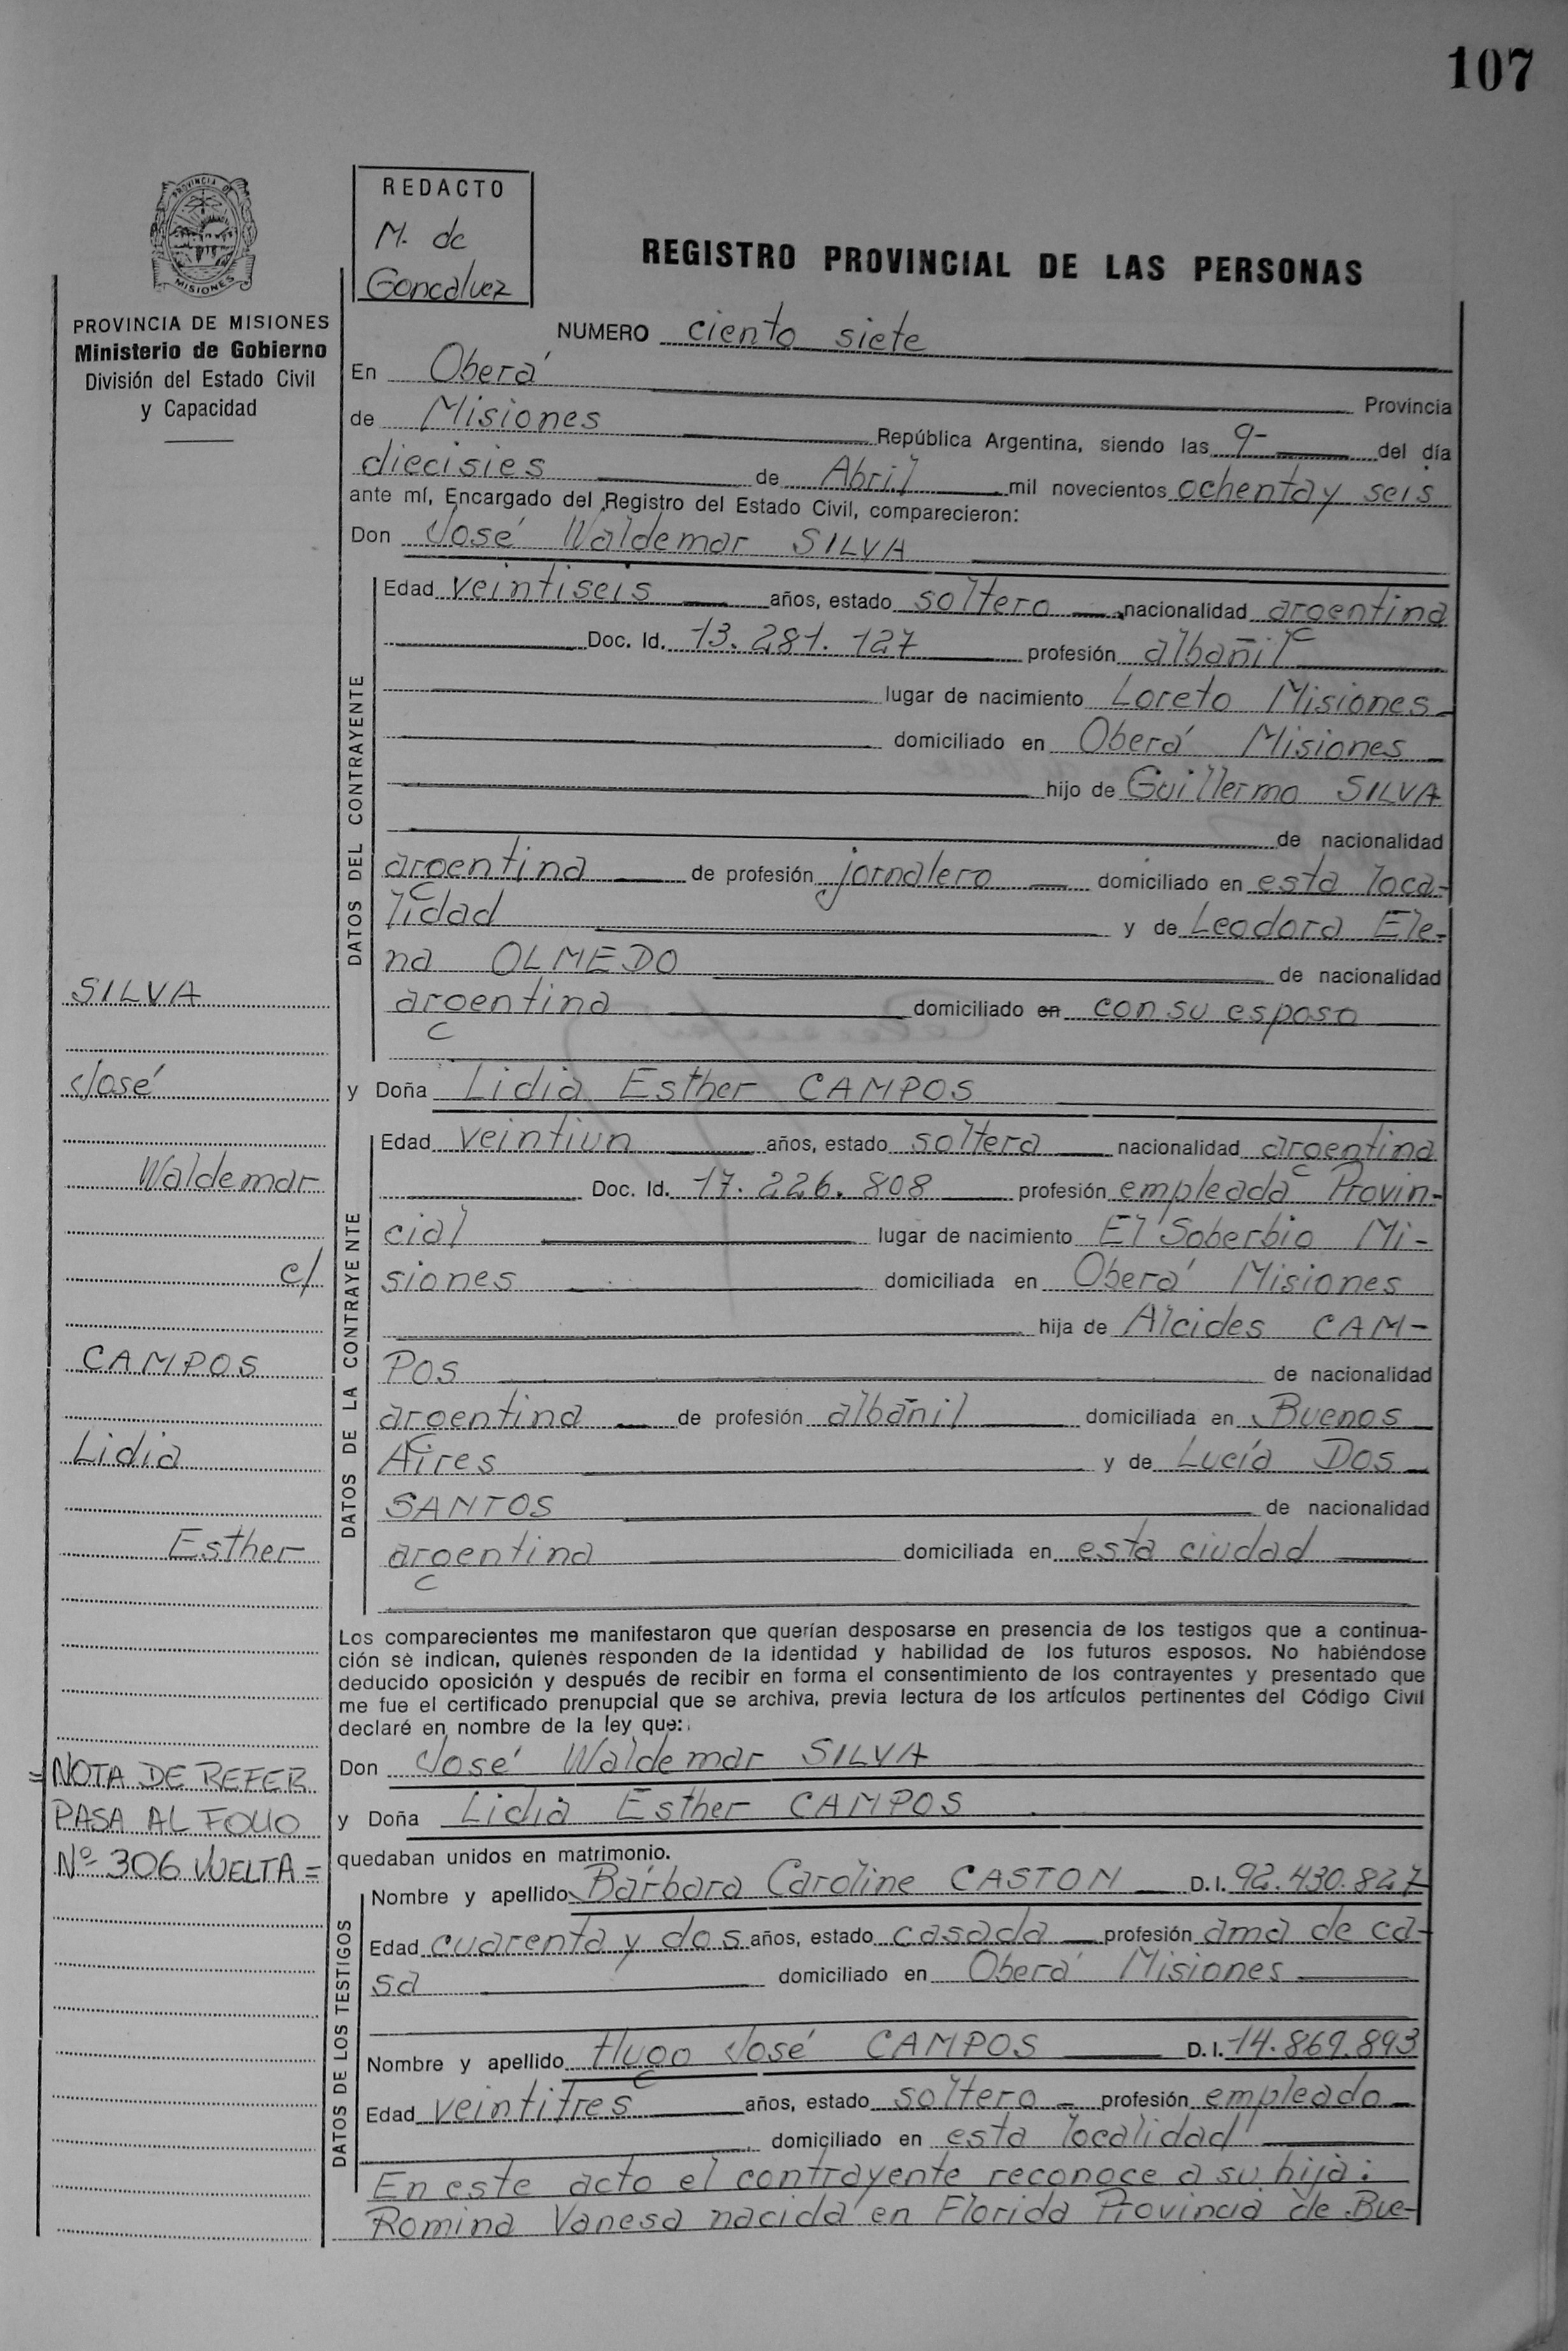 107
PROVINCIA DE MISIONES
PROVINCIA DE MISIONES
Ministerio de Gobierno
División del Estado Civil
y Capacidad
REDACTO
M. de
Goncalvez
REGISTRO PROVINCIAL DE LAS PERSONAS
NUMERO ciento siete
En Oberá Provincia
de Misiones República Argentina, siendo las 9- del día
diecisies de Abril mil novecientos ochenta y seis
ante mí, Encargado del Registro del Estado Civil, comparecieron:
Don José Waldemar SILVA
DATOS DEL CONTRAYENTE
Edad veintiseis años, estado soltero nacionalidad argentina
Doc. Id. 13.281.127 profesión albañil
lugar de nacimiento Loreto Misiones
domiciliado en Oberá Misiones
hijo de Guillermo SILVA
de nacionalidad
argentina de profesión jornalero domiciliado en esta loca-
lidad y de Leodora Ele-
na OLMEDO de nacionalidad
argentina domiciliado en con su esposo
y Doña Lidia Esther CAMPOS
DATOS DE LA CONTRAYENTE
Edad veintiun años, estado soltera nacionalidad argentina
Doc. Id. 17.226.808 profesión empleada Provin-
cial lugar de nacimiento El Soberbio Mi-
siones domiciliada en Oberá Misiones
hija de Alcides CAM-
POS de nacionalidad
argentina de profesión albañil domiciliada en Buenos
Aires y de Lucía DOS
SANTOS de nacionalidad
argentina domiciliada en esta ciudad
Los comparecientes me manifestaron que querían desposarse en presencia de los testigos que a continua-
ción se indican, quienes responden de la identidad y habilidad de los futuros esposos. No habiéndose
deducido oposición y después de recibir en forma el consentimiento de los contrayentes y presentado que
me fue el certificado prenupcial que se archiva, previa lectura de los artículos pertinentes del Código Civil
declaré en nombre de la ley que:
Don José Waldemar SILVA
y Doña Lidia Esther CAMPOS
quedaban unidos en matrimonio.
DATOS DE LOS TESTIGOS
Nombre y apellido Bárbara Caroline CASTON D.I. 92.430.827
Edad cuarenta y dos años, estado casada profesión ama de ca-
sa domiciliado en Oberá Misiones
Nombre y apellido Hugo José CAMPOS D.I. 14.869.893
Edad veintitres años, estado soltero - profesión empleado
domiciliado en esta localidad
En este acto el contrayente reconoce a su hija:
Romina Vanesa nacida en Florida Provincia de Bue-
SILVA
José
Waldemar
c/
CAMPOS
Lidia
Esther
=NOTA DE REFER
PASA AL FOLIO
Nº 306 VUELTA=